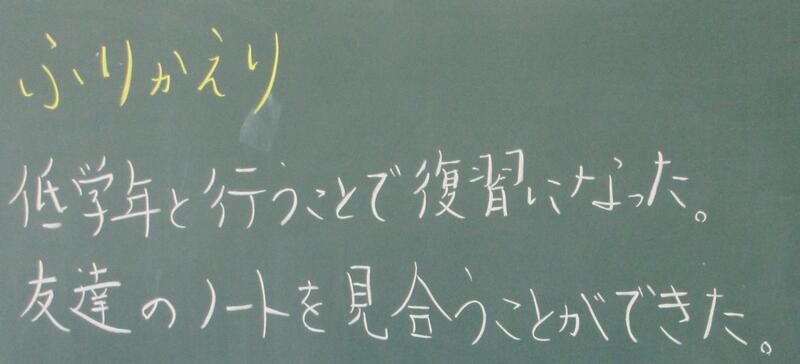 ふりかえり
低学年と行うことで復習になった。
友達のノートを見合うことができた。